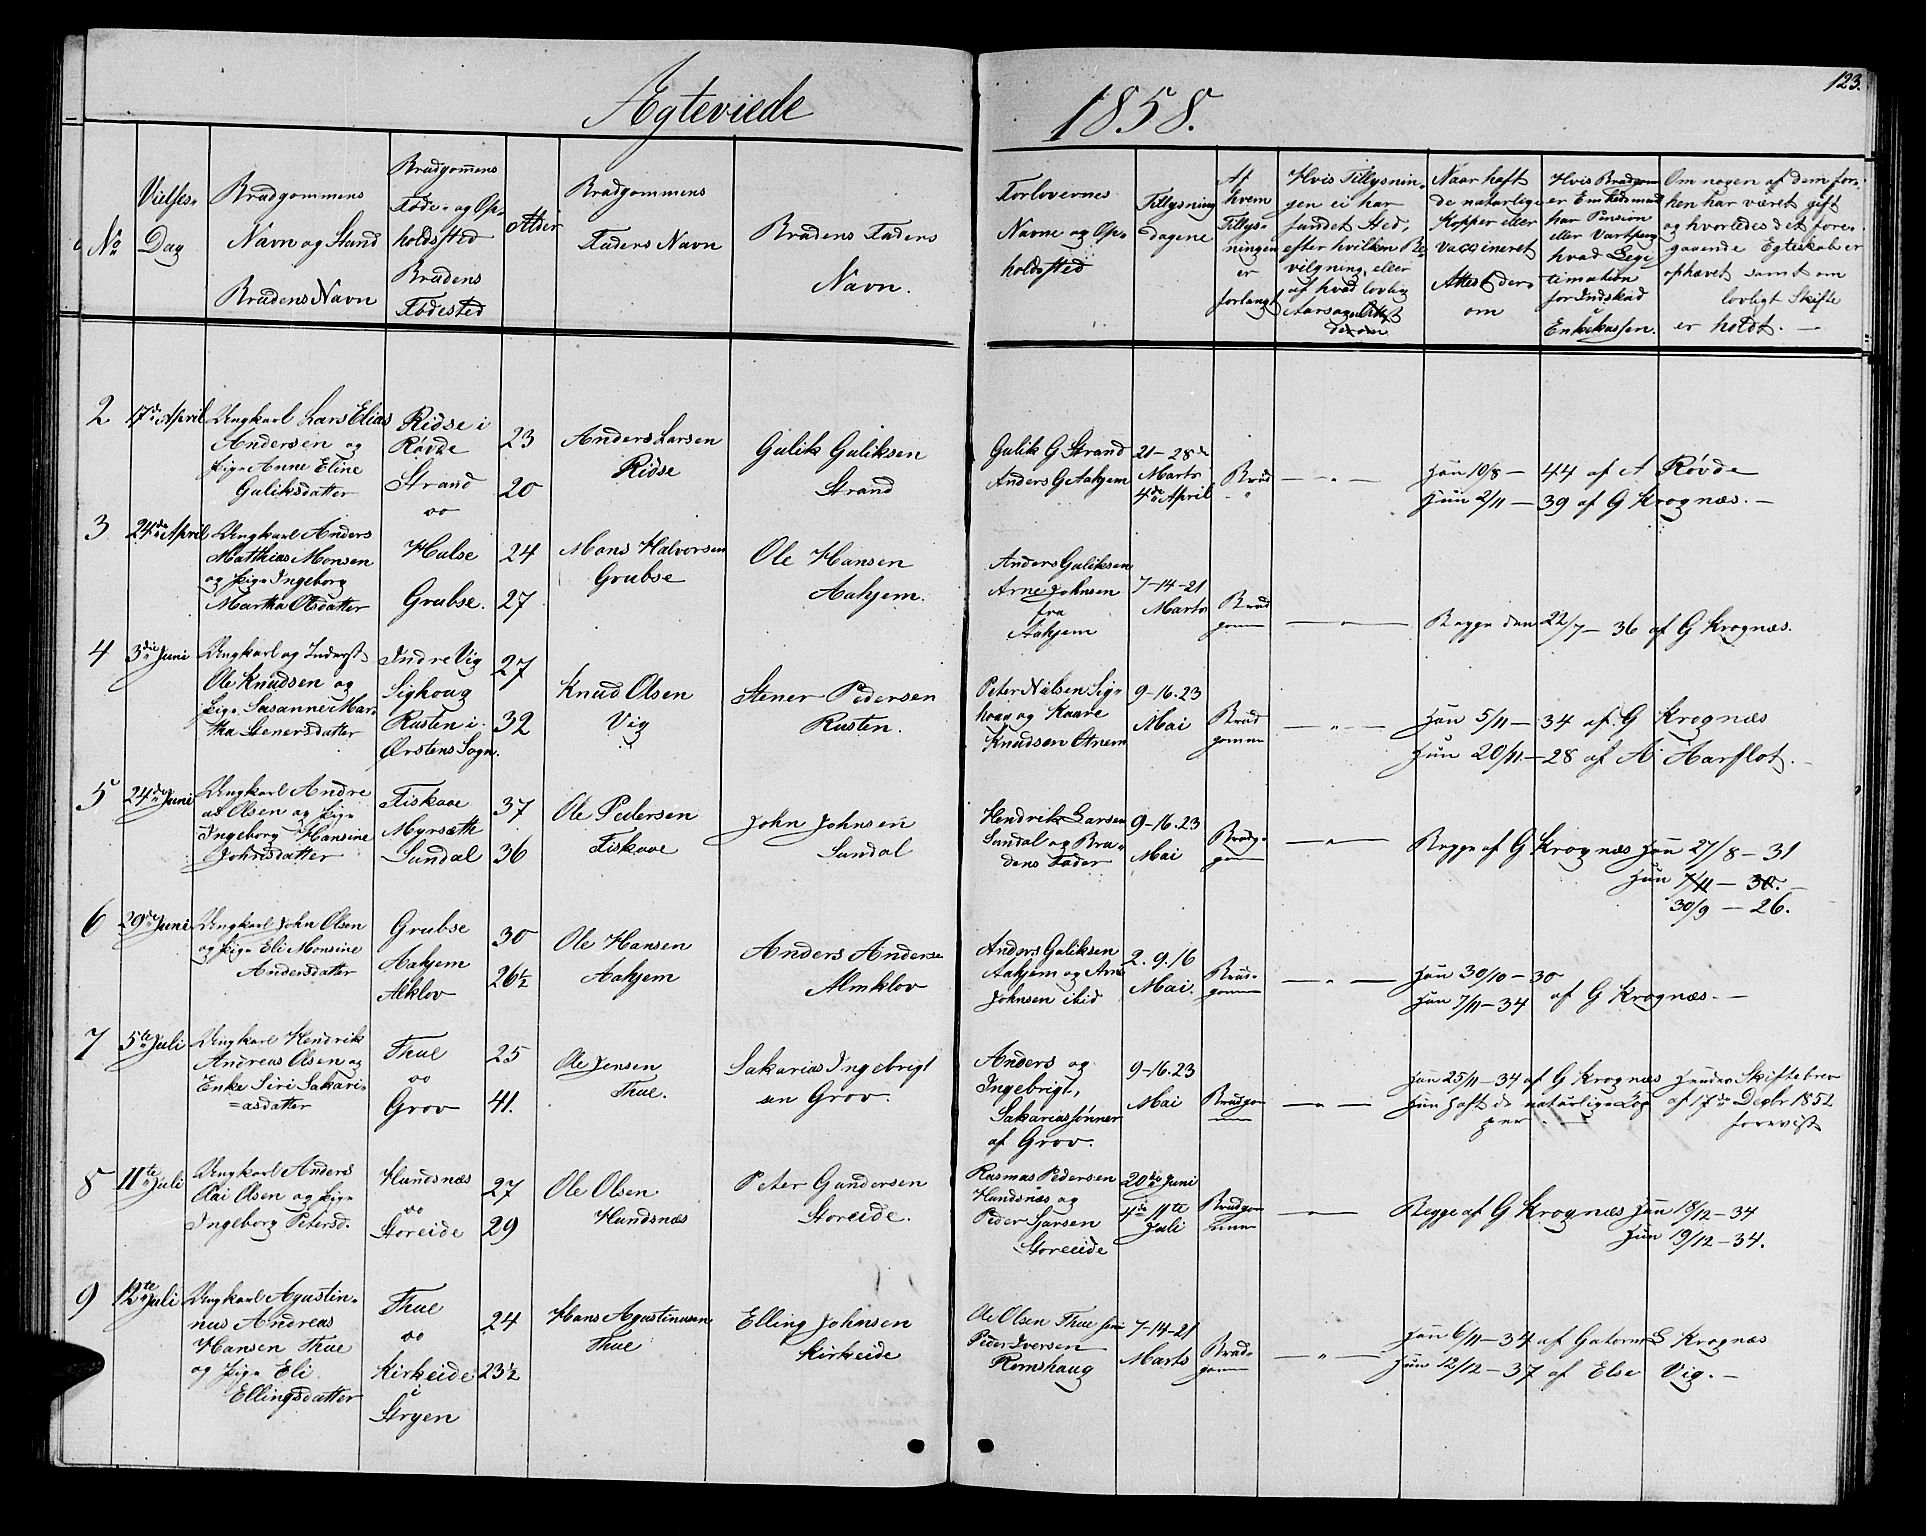 Ægteviede
1858.
123.
No
Vielses-
Dag
Brudgommens
Navn og Stand
Brudens Navn
Brudgomens
Føde- og Op-
holdssted
Brudens
Fødested
Alder
Brudgommens
Faders Navn
Brudens Faders
Navn.
Forlovernes
Navne og Op-
holdssted
Tillysnings
dagene
Af
hvem
Tillys-
ningen
er
forlangt
Hvis Tillysnin-
gen ei har
fundet Sted,
efter hvilken Be-
vilgning, eller
af hvad lovlig
Aarsag
Naar haft
de naturlige
Kopper eller
vaccineret
Attest der-
om
Hvis Brudgom
er Enkemand
har Pension
eller Vartpeng
hvad Legi
timation
for Indskud
i
Enkekassen.
Om nogen af dem for-
hen har været gift
og hvorledes det fore-
gaaende Egteskab er
ophævet samt om
lovligt Skifte
er holdt. —
2
17de April
Ungkarl Lars Elias
Andersen og
Pige Anne Eline
Guliksdatter
Ridse i
Røvde
Strand
oo
23
20
Anders Larsen
Ridse
Gulik Guliksen
Strand
Gulik G Strand
Anders G Aahjem
21-28de
Marts
4de April
Brud
"
— " —
Han 10/8 — 44 af A Røvde
Hun 2/11 — 39 af G Krognæs. —
3
24de April
Ungkarl Anders
Matthias Monsen
og Pige Ingeborg
Martha Olsdatter
Hulse
Grubse.
24
27
Mons Halvorsen
Grubse
Ole Hansen
Aahjem.
Anders Guliksen
Arne Johnsen
fra
Aahjem
7-14-21
Marts
Brud
gomm
— " —
Begge den 22/7 — 36 af G Krognæs.
4
3die Juni
Ungkarl og Inderst
Ole Knudsen og
Pige Susanne Mar-
tha Stenersdatter
Indre Vig
Sighoug
Rusten i
Ørstens Sogn.
27
32
Knud Olsen
Vig
Stener Pedersen
Rusten.
Peter Nilsen Sig-
houg og Kaare
Knudsen Aneim
9-16.23
Mai
Brud
gomme
— " —
Han 5/11 — 34 af G Krognæs
Hun 20/11. — 28 af A Aarflot. —
5
24de Juni
Ungkarl Andre
as Olsen og Pige
Ingeborg Hansine
Johnsdatter
Fiskaae
Myrsæth
Sundal
37
36
Ole Pedersen
Fiskaae
John Johnsen
Sundal
Hendrik Larsen
Sundal og Bru-
dens Fader
9-16.23
Mai
Brudg-
gomm
— " —
Begge af G Krognæs Han 27/8 — 31
Hun 7/11 — 30. —
30/9 — 26.
6
29de Juni
Ungkarl John Olsen
og Pige Eli Monsine
Andersdatter
Grubse
Aahjem
Alklov
30
26½
Ole Hansen
Aahjem
Anders Anderse
Almklov
Anders Guliksen
Aahjem og Arne
Johnsen ibid
2.9.16
Mai.
Brud-
gomm
— " —
Han 30/10 — 30
Hun 7/11 — 34 af G Krognæs. —
7
5te Juli
Ungkarl Hendrik
Andreas Olsen og
Enke Siri Sakari-
=asdatter
Thue
oo
Grov
25
41.
Ole Jensen
Thue.
Sakarias Ingebrigt
sen Grov.
Anders og
Ingebrigt,
Sakariassønner
af Grov.
9-16.23
Mai
Brudgom
mm
— " —
Han 25/11 — 34 af G Krognæs
Hun haft de naturlige Kop
per. —
Hendes Skiftebrev
af 17de Decbr 1852
forevist
8
11te Juli
Ungkarl Anders
Olai Olsen og Pige
Ingeborg Petersd.
Hundsnæs
oo
Storeide
27
29
Ole Olsen
Hundsnæs
Peter Gundersen
Storeide.
Rasmus Pedersen
Hundsnæs og
Peder Larsen
Storeide
20de Juni
4de 11te
Juli
Brudgom
mm
— " —
Begge af G Krognæs Han 18/12 — 34
Hun 19/12 — 34.
9
12te Juli
Ungkarl Agustin-
nus Andreas
Hansen Thue
og Pige Eli
Ellingsdatter
Thue
oo
Kirkeide
i
Stryen
24
23½
Hans Agustinusen
Thue
Elling Johnsen
Kirkeide
Ole Olsen Thue
Peder Iversen
Romshaug
7-14-21
Marts
Brud-
gomm
— " —
Han 6/11 — 34 af Gutorm S Krognæs
Hun 12/12 — 37 af Else Vig. —